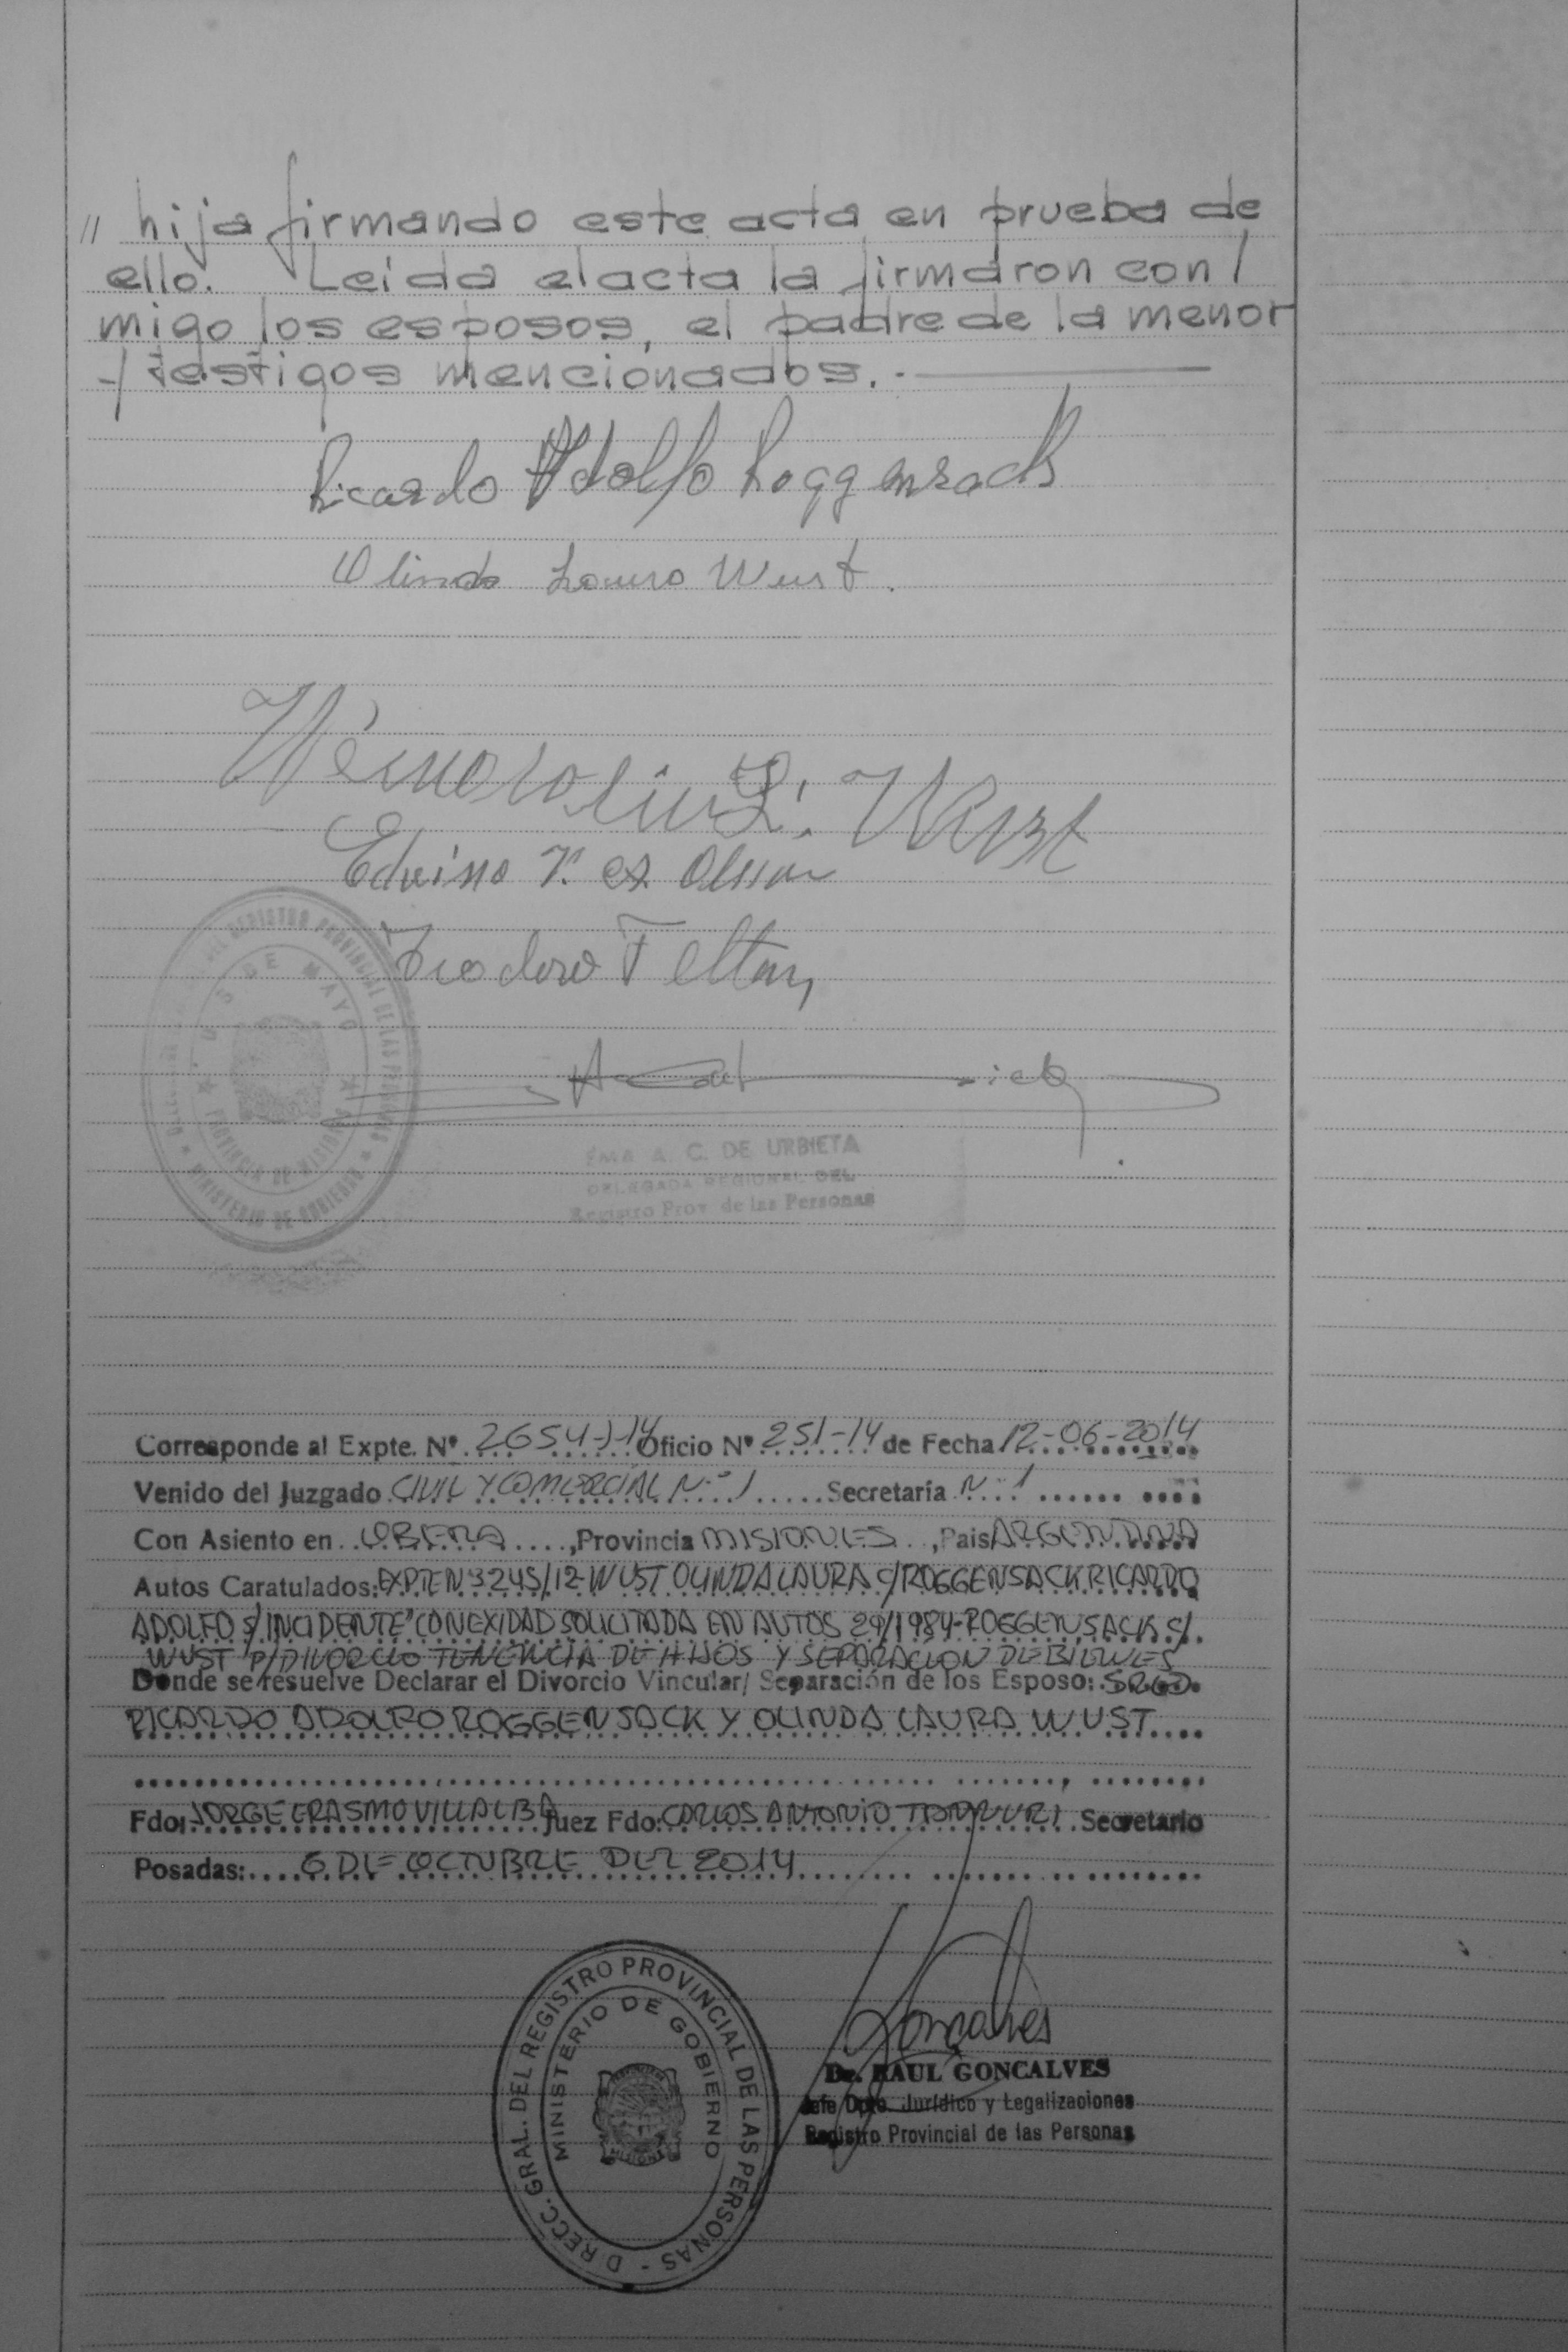 // hija firmando este acta en prueba de
ello. Leida el acta la firmaron con/
migo los esposos, el padre de la menor
y testigos mencionados.-
Ricardo Adolfo Roggensack
Olinda Laura Wust.
Wust
Edvino
Teodoro
REGISTRO PROVINCIAL DE LAS PERSONAS
25 DE MAYO
PROVINCIA DE MISIONES
MINISTERIO DE GOBIERNO
A. C. DE URBIETA
DELEGADA REGIONAL DEL
Registro Prov. de las Personas
Corresponde al Expte. Nº 2654-J-14 Oficio Nº 251-14 de Fecha 12-06-2014
Venido del Juzgado CIVIL Y COMERCIAL Nº 1 Secretaría Nº 1
Con Asiento en OBERA, Provincia MISIONES, Pais ARGENTINA
Autos Caratulados: EXPTE Nº 3245/12 WUST OLINDA LAURA C/ROGGENSACK RICARDO
ADOLFO S/INCIDENTE" CONEXIDAD SOLICITADA EN AUTOS 29/1984-ROGGENSACK C/
WUST P/DIVORCIO TENENCIA DE HIJOS Y SEPARACION DE BIENES
Donde se resuelve Declarar el Divorcio Vincular/ Separación de los Esposo: SRES.
RICARDO ADOLFO ROGGENSACK Y OLINDA LAURA WUST
Fdo: JORGE ERASMO VILLALBA Juez Fdo: CARLOS ANTONIO Secretario
Posadas: 6 DE OCTUBRE DEL 2014
DIRECC. GRAL. DEL REGISTRO PROVINCIAL DE LAS PERSONAS -
MINISTERIO DE GOBIERNO
MISIONES
Goncalves
Dr. RAUL GONCALVES
Jefe Dpto. Jurídico y Legalizaciones
Registro Provincial de las Personas